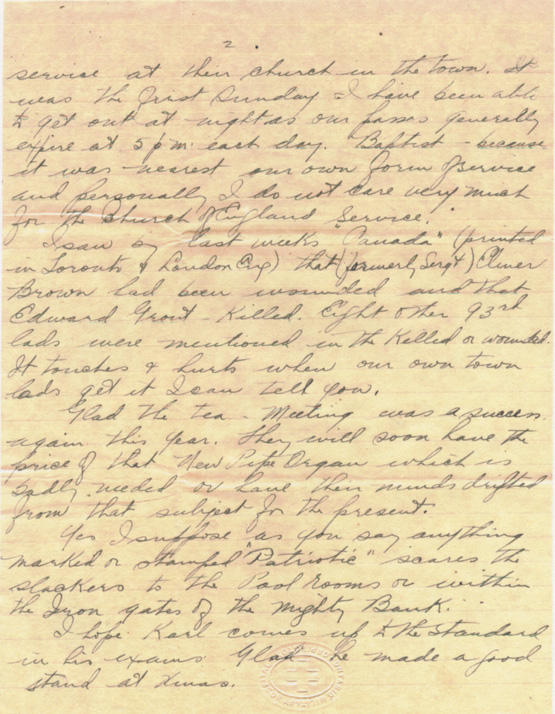 2.
service at their church in the town. It
was the first Sunday I have been able
to get out at night as our passes generally
expire at 5 p.m. each day. Baptist - because
it was nearest our own form of service
and personally I do not care very much
for the Church of England Service.
I saw by last weeks "Canada" (printed
in Toronto & London Eng) that (formerly Sergt) Elmer
Brown had been wounded and that
Edward Grout - Killed. Eight other 93rd
lads were mentioned in the Killed or wounded.
It touches & hurts when our own town
lads get it I can tell you.
Glad the tea - Meeting was a success
again this year. They will soon have the
price of that New Pipe Organ which is
sadly needed or have their minds drifted
from that subject for the present.
Yes I suppose as you say anything
marked or stamped "Patriotic" scares the
slackers to the Pool Rooms or within
the Iron gates of the mighty Bank.
I hope Karl comes up to the Standard
in his exams. Glad he made a good
stand at Xmas.